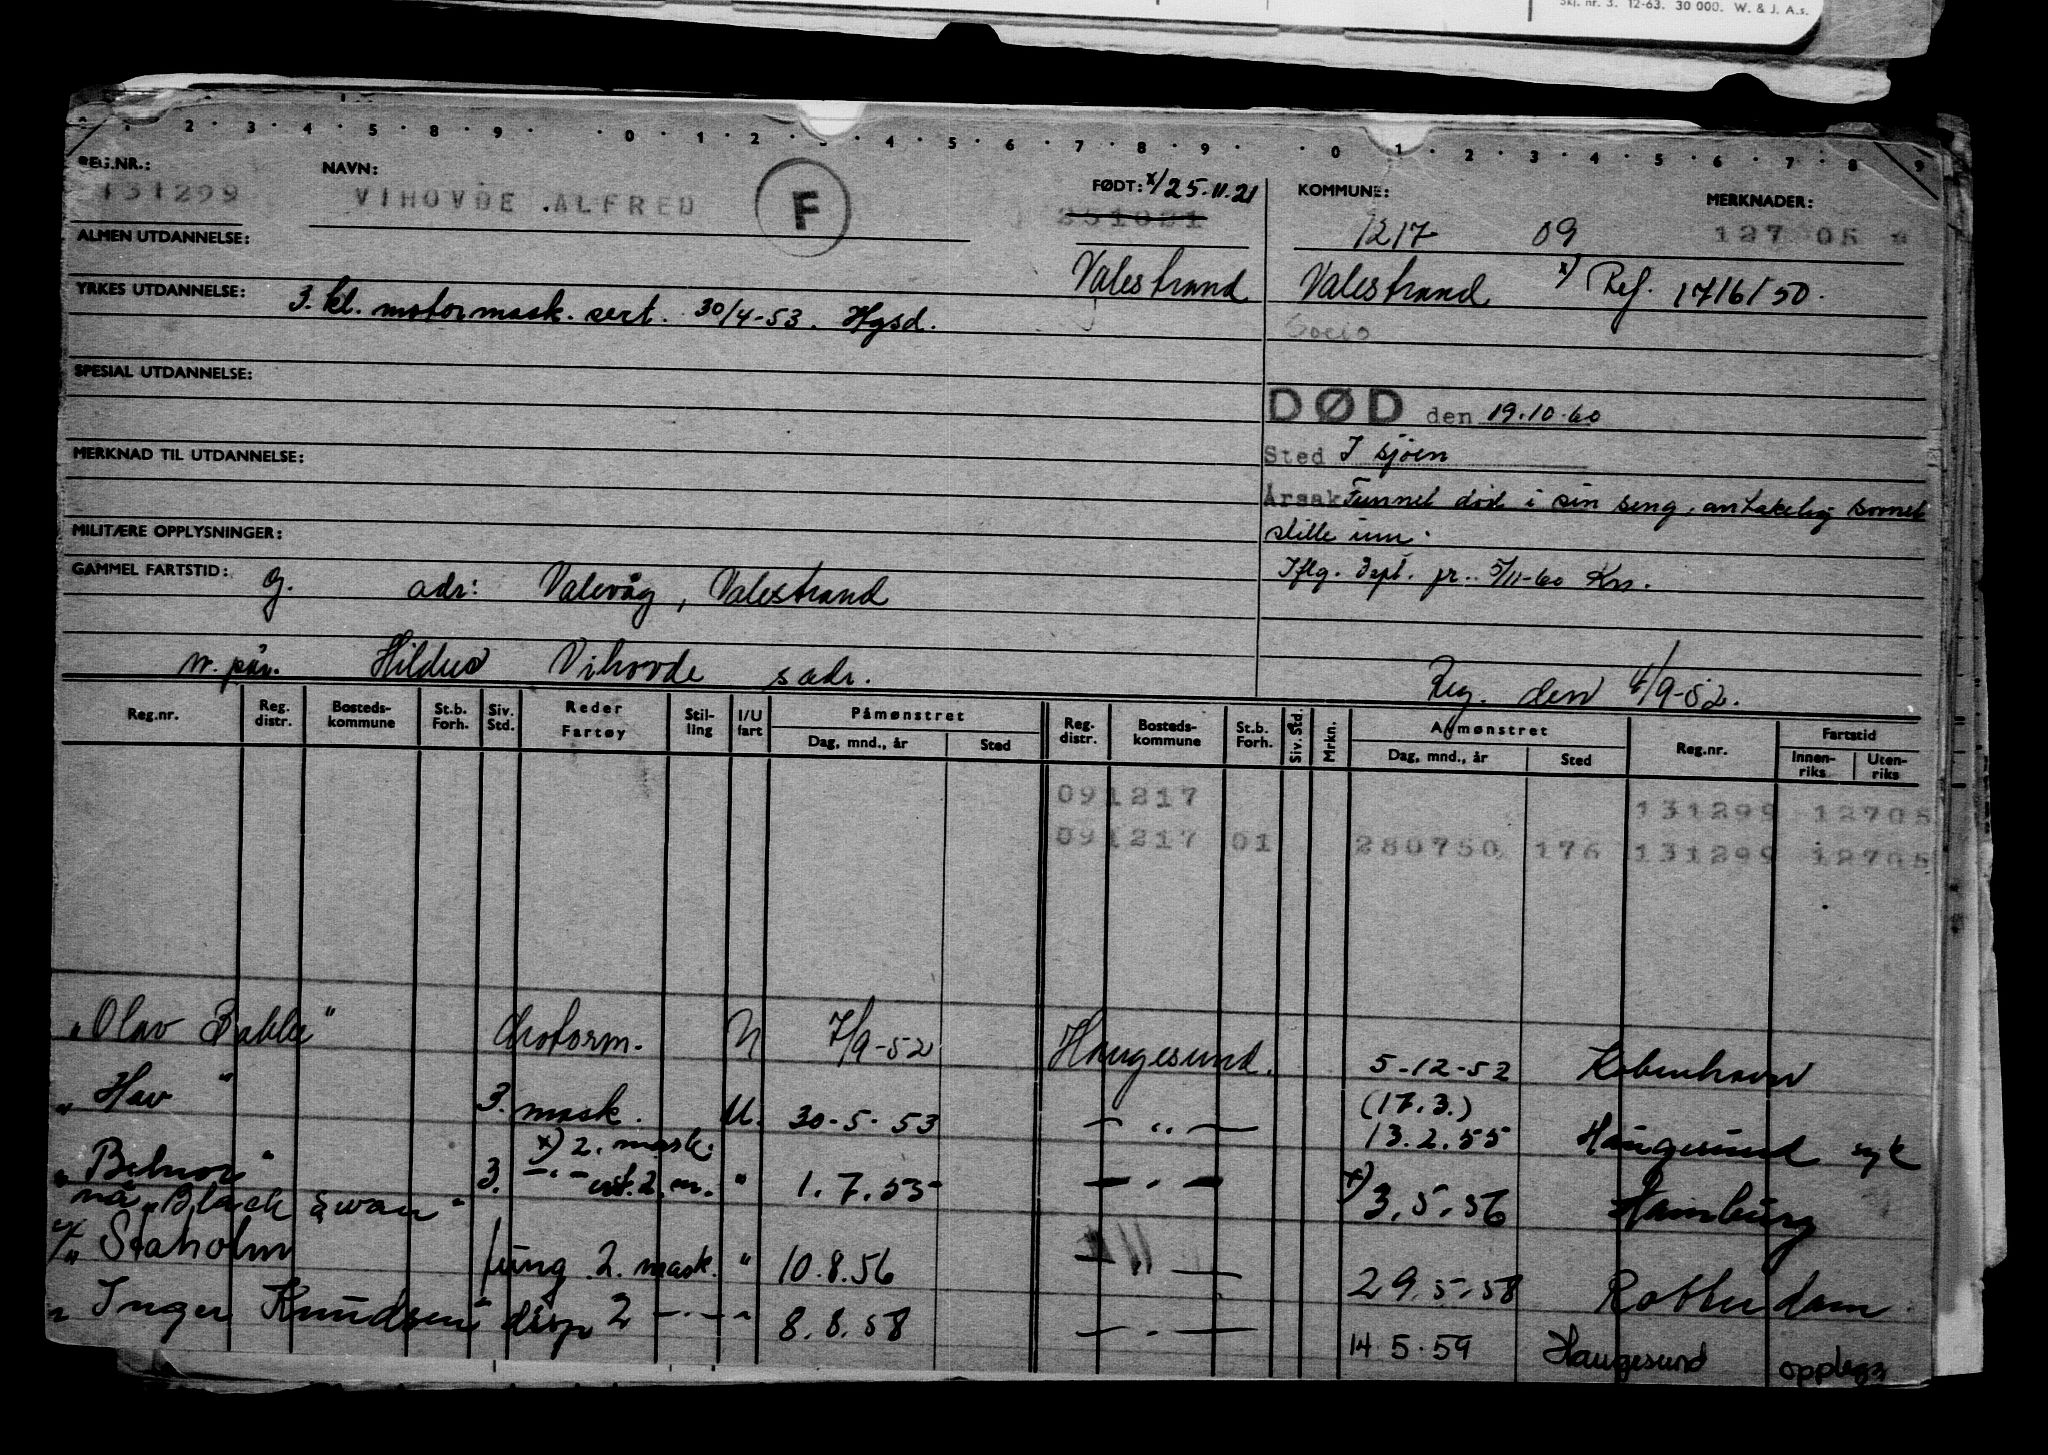 Skj. nr. 3. 12-63. 30 000. W. & J. A.s.
2 · 3 · 4 · 5 · 8 · 9 · · 0 · 1 · 2 · 3 · 4 · 5 · 6 · 7 · 8 · 9 · · 0 · 1 · 2 · 3 · 4 · 5 · 6 · 7 · 8 · 9
REG.NR.: NAVN: FØDT: x/25.11.21 KOMMUNE: MERKNADER:
131299 VIHOVDE ALFRED F 251021 1217 09 127 05
ALMEN UTDANNELSE: Valestrand Valestrand x) Ref. 17/6/50.
YRKES UTDANNELSE: 3. kl. motormask. sert. 30/4-53. Hgsd.
SPESIAL UTDANNELSE:
DØD den 19.10.60
MERKNAD TIL UTDANNELSE: Sted I sjøen
Årsak Funnet død i sin seng, antakelig sovnet
MILITÆRE OPPLYSNINGER: stille inn.
GAMMEL FARTSTID: g. adr: Valevåg, Valestrand Iflg. dept. pr. 5/11-60 Kn.
n. pår. Hildus Vihovde s adr. Reg. den 4/9-52.
Reg.nr. Reg. distr. Bosteds-kommune St.b. Forh. Siv. Std. Reder Fartøy Stil-ling I/U fart Påmønstret Reg. distr. Bosteds-kommune St.b. Forh. Siv. Std. Mrkn. Avmønstret Reg.nr. Fartstid
Dag, mnd., år Sted Dag, mnd., år Sted Innen-riks Uten-riks
091217 131299 12705
091217 01 280750 176 131299 12705
"Olav Bakke" Motorm. U 7/9-52 Haugesund. 5-12-52 København
"Hav" 3. mask. U. 30-5-53 — " — (17.3.) 13.2.55 Haugesund syk
x) 2. mask.
"Belnor" 3. — " — 2. m. " 1.7.55 — " — x) 3.5.56 Hamburg
nå "Black Swan"
"Staholm fung. 2. mask. " 10.8.56 — " — 29.5.58 Rotterdam
"Inger Knudsen" disp 2 — " — " 8.8.58 — " — 14 5.59 Haugesund opplegg